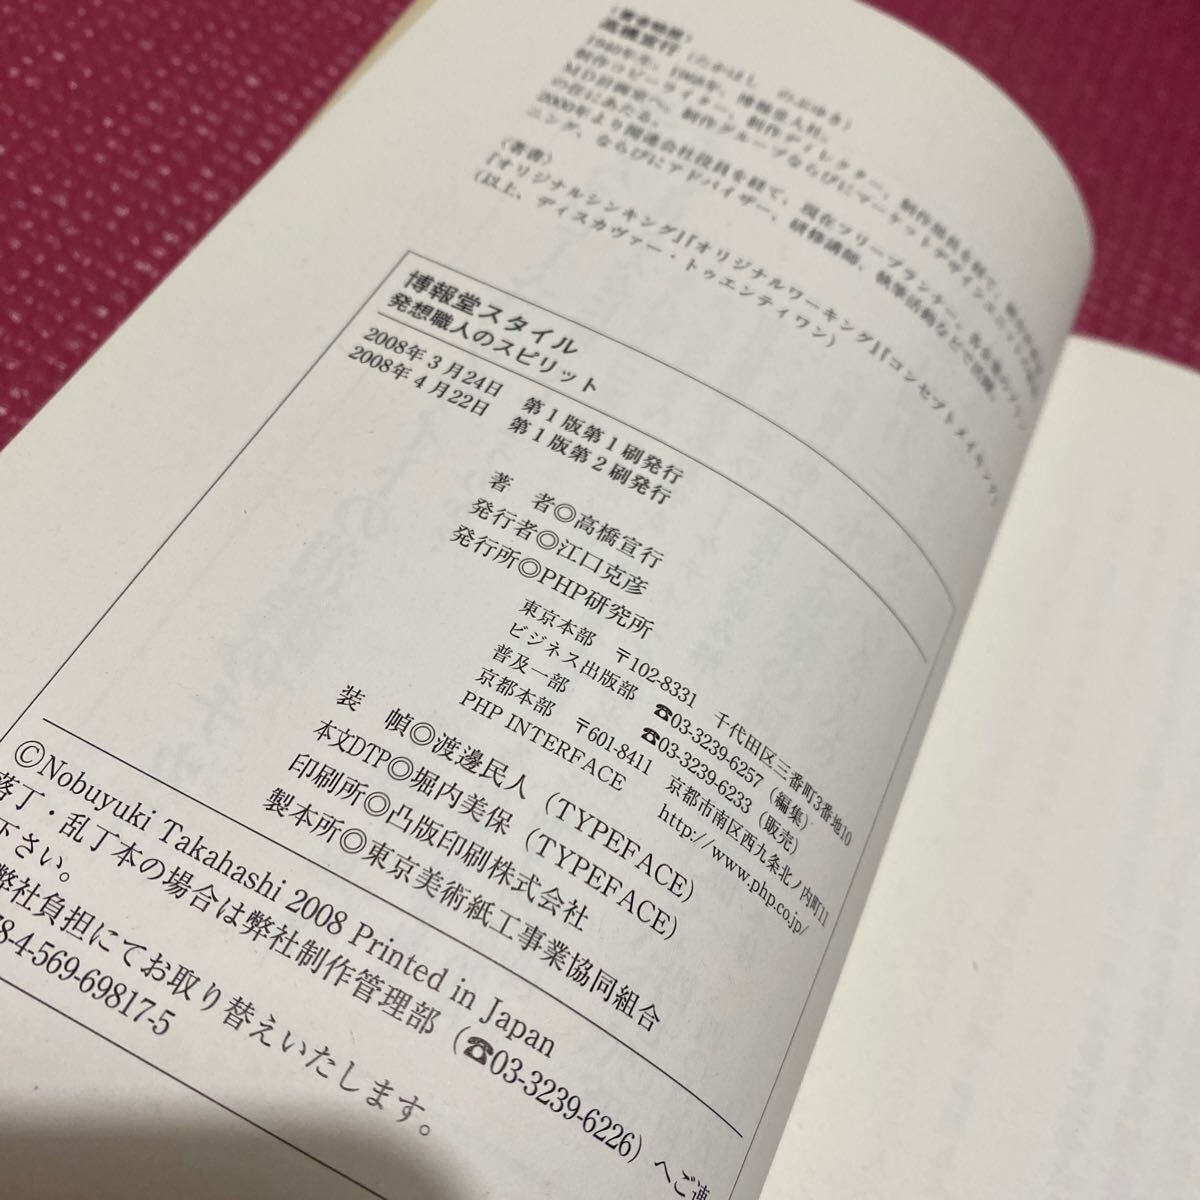 〈著者略歴〉
高橋宣行(たかはし のぶゆき)
1940年生。1968年、博報堂入社。
制作コピーライター、制作ディレクター、制作部長を経て、
MD計画室へ。制作グループならびにマーケットデザインユニット
の任にあたる。
2000年より関連会社役員を経て、現在フリープランナー。
ニング、ならびにアドバイザー、研修講師、執筆活動などで活躍
〈著書〉
『オリジナルシンキング』『オリジナルワーキング』『コンセプトメイキング』
(以上、ディスカヴァー・トゥエンティワン)
博報堂スタイル
発想職人のスピリット
2008年3月24日 第1版第1刷発行
2008年4月22日 第1版第2刷発行
著 者◎高橋宣行
発行者◎江口克彦
発行所◎PHP研究所
東京本部 〒102-8331 千代田区三番町3番地10
ビジネス出版部 ☎03-3239-6257(編集)
普及一部 ☎03-3239-6233(販売)
京都本部 〒601-8411 京都市南区西九条北ノ内町11
PHP INTERFACE http://www.php.co.jp/
装 幀◎渡邊民人(TYPEFACE)
本文DTP◎堀内美保(TYPEFACE)
印刷所◎凸版印刷株式会社
製本所◎東京美術紙工事業協同組合
©Nobuyuki Takahashi 2008 Printed in Japan
落丁・乱丁本の場合は弊社制作管理部(☎03-3239-6226)へご連
下さい。
弊社負担にてお取り替えいたします。
78-4-569-69817-5